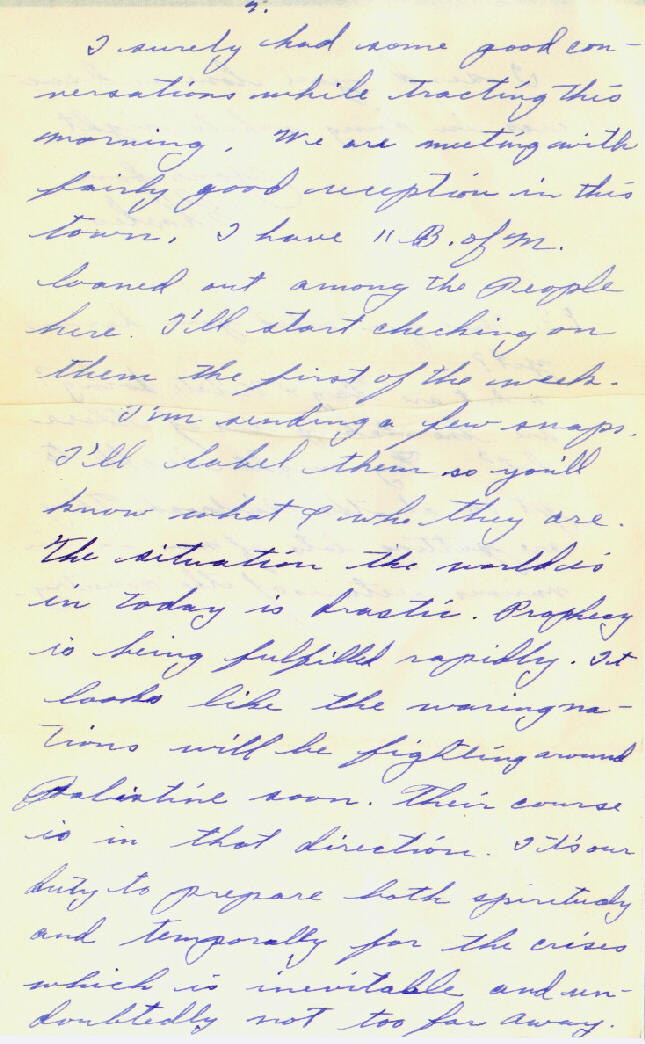 I surely had some good con-
versations while tracting this
morning. We are meeting with
fairly good reception in this
town. I have 11 B. of M.
loaned out among the People
here. I'll start checking on
them the first of the week.
I'm sending a few snaps.
I'll label them so you'll
know what & who they are.
The situation the world is
in today is drastic. Prophecy
is being fulfilled rapidly. It
looks like the waring na-
tions will be fighting around
Palistine soon. Their course
is in that direction. It's our
duty to prepare both spiritudy
and temporally for the crises
which is inevitable and un-
doubtedly not too far away.